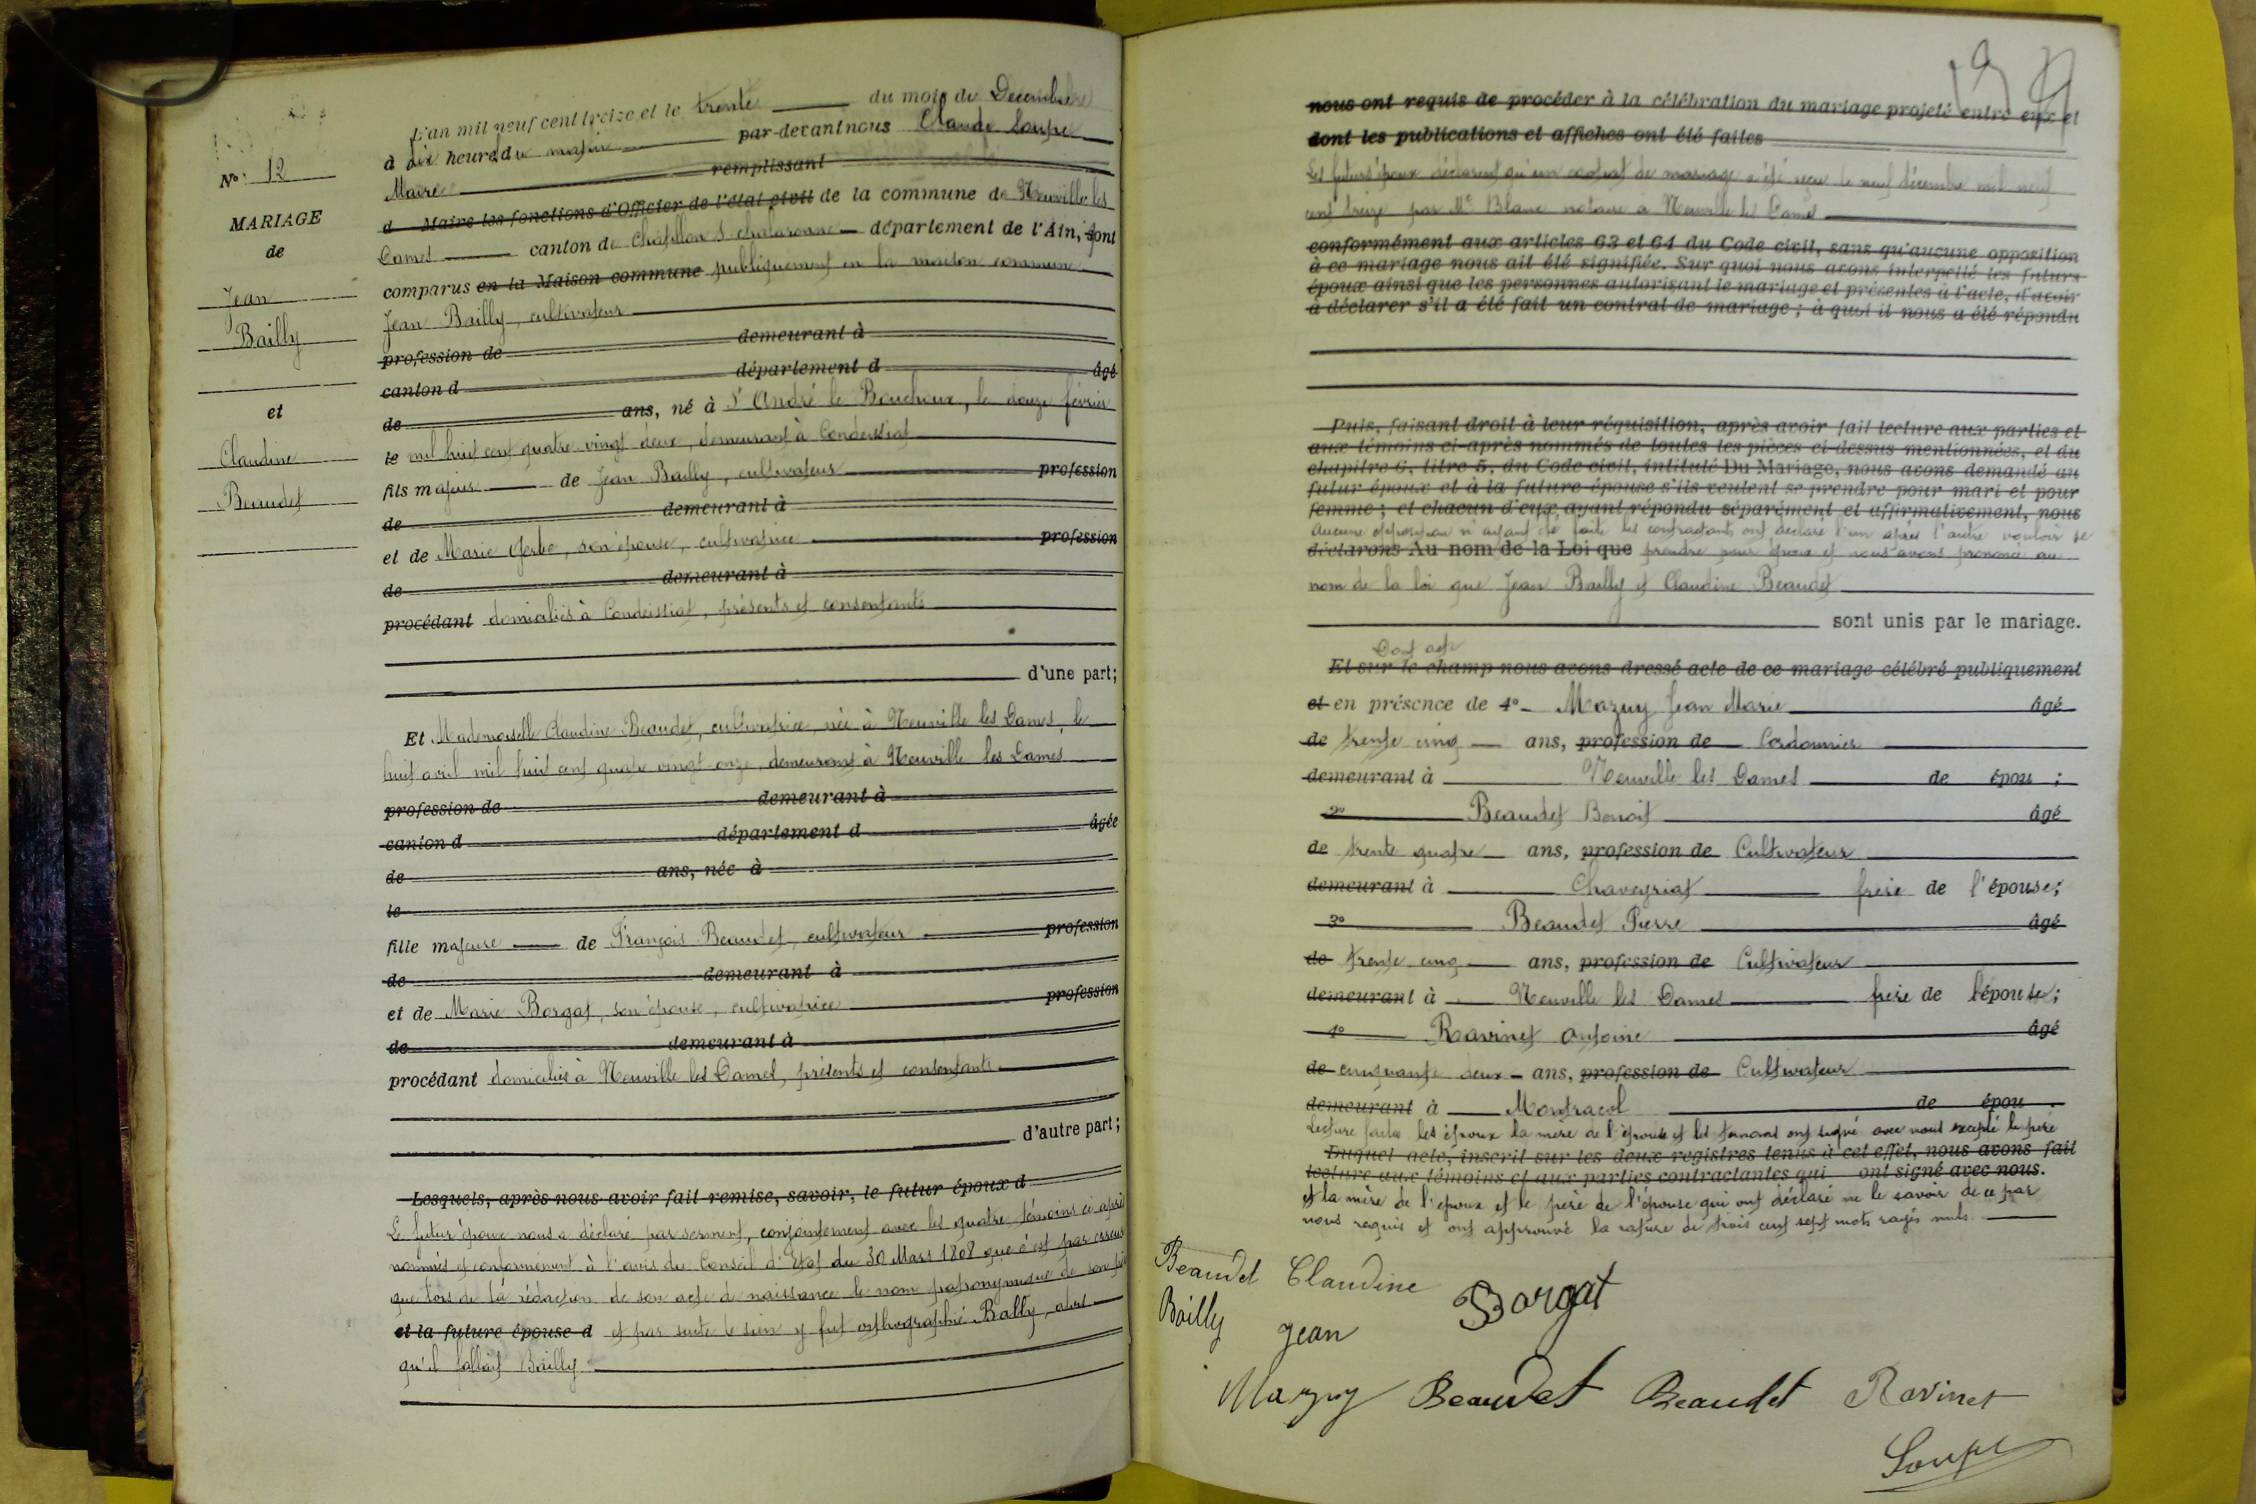 L'an mil neuf cent treize et le trente du mois de Decembre
à dix heures du matin par-devant nous Claude Soupe
Maire remplissant
d Maire les fonctions d'Officier de l'état civil de la commune de Neuville les
Dames canton de Châtillon s chalaronne département de l'Ain, sont
comparus en la Maison commune publiquement en la maison commune
Jean Bailly, cultivateur
profession de demeurant à
canton d département d âgé
de ans, né à St André le Bouchoux, le douze février
le mil huit cent quatre vingt deux, demeurant à Condeissiat
fils majeur de Jean Bailly, cultivateur profession
de demeurant à
et de Marie Gerbe, son épouse, cultivatrice profession
de demeurant à
procédant domiciliés à Condeissiat, présents et consentants
d'une part;
Et Mademoiselle Claudine Beaudet, cultivatrice, née à Neuville les Dames, le
huit avril mil huit cent quatre vingt onze, demeurant à Neuville les Dames
profession de demeurant à
canton d département d âgée
de ans, née à
le
fille majeure de François Beaudet, cultivateur profession
de demeurant à
et de Marie Borgat, son épouse, cultivatrice profession
de demeurant à
procédant domiciliés à Neuville les Dames, présents et consentants
d'autre part;
Lesquels, après nous avoir fait remise, savoir, le futur époux d
Le futur époux nous a déclaré par serment, conjointement avec les quatre témoins ci après
nommés et conformément à l'avis du Conseil d'Etat du 30 Mars 1808 que c'est par erreur
que lors de la rédaction de son acte de naissance le nom patronymique de son père
et la future épouse d et par suite le sien y fut orthographié Bally, alors
qu'il fallait Bailly
No: 12
MARIAGE
de
Jean
Bailly
et
Claudine
Beaudet
nous ont requis de procéder à la célébration du mariage projeté entre eux et
dont les publications et affiches ont été faites
Les futurs époux déclarent qu'un contrat de mariage a été reçu le neuf décembre mil neuf
cent treize par Me Blanc notaire à Neuville les Dames
conformément aux articles 63 et 64 du Code civil, sans qu'aucune opposition
à ce mariage nous ait été signifiée. Sur quoi nous avons interpellé les futurs
époux ainsi que les personnes autorisant le mariage et présentes à l'acte, d'avoir
à déclarer s'il a été fait un contrat de mariage; à quoi il nous a été répondu
Puis, faisant droit à leur réquisition, après avoir fait lecture aux parties et
aux témoins ci-après nommés de toutes les pièces ci-dessus mentionnées, et du
chapitre 6, titre 5, du Code civil, intitulé Du Mariage, nous avons demandé au
futur époux et à la future épouse s'ils veulent se prendre pour mari et pour
femme; et chacun d'eux, ayant répondu séparément et affirmativement, nous
Aucune opposition n'ayant été faite les contractants ont déclaré l'un après l'autre vouloir se
déclarons Au nom de la Loi que prendre pour époux et nous avons prononcé au
nom de la loi que Jean Bailly et Claudine Beaudet
sont unis par le mariage.
Dont acte
Et sur le champ nous avons dressé acte de ce mariage célébré publiquement
et en présence de 1º Mazuy Jean Marie âgé
de trente cinq ans, profession de Cordonnier
demeurant à Neuville les Dames de épou ;
2º Beaudet Benoit âgé
de trente quatre ans, profession de Cultivateur
demeurant à Chaveyriat frère de l'épouse;
3º Beaudet Pierre âgé
de trente cinq ans, profession de Cultivateur
demeurant à Neuville les Dames frère de l'épouse;
4º Ravinet Antoine âgé
de cinquante deux ans, profession de Cultivateur
demeurant à Montracol de épou .
Lecture faite les époux la mère de l'épouse et les témoins ont signé avec nous excepté le père
Duquel acte, inscrit sur les deux registres tenus à cet effet, nous avons fait
lecture aux témoins et aux parties contractantes qui ont signé avec nous.
et la mère de l'époux et le père de l'épouse qui ont déclaré ne le savoir de ce par
nous requis et ont approuvé la rature de trois cent sept mots rayés nuls.
Beaudet Claudine Borgat
Bailly Jean
Mazuy Beaudet Beaudet Ravinet
Soupe